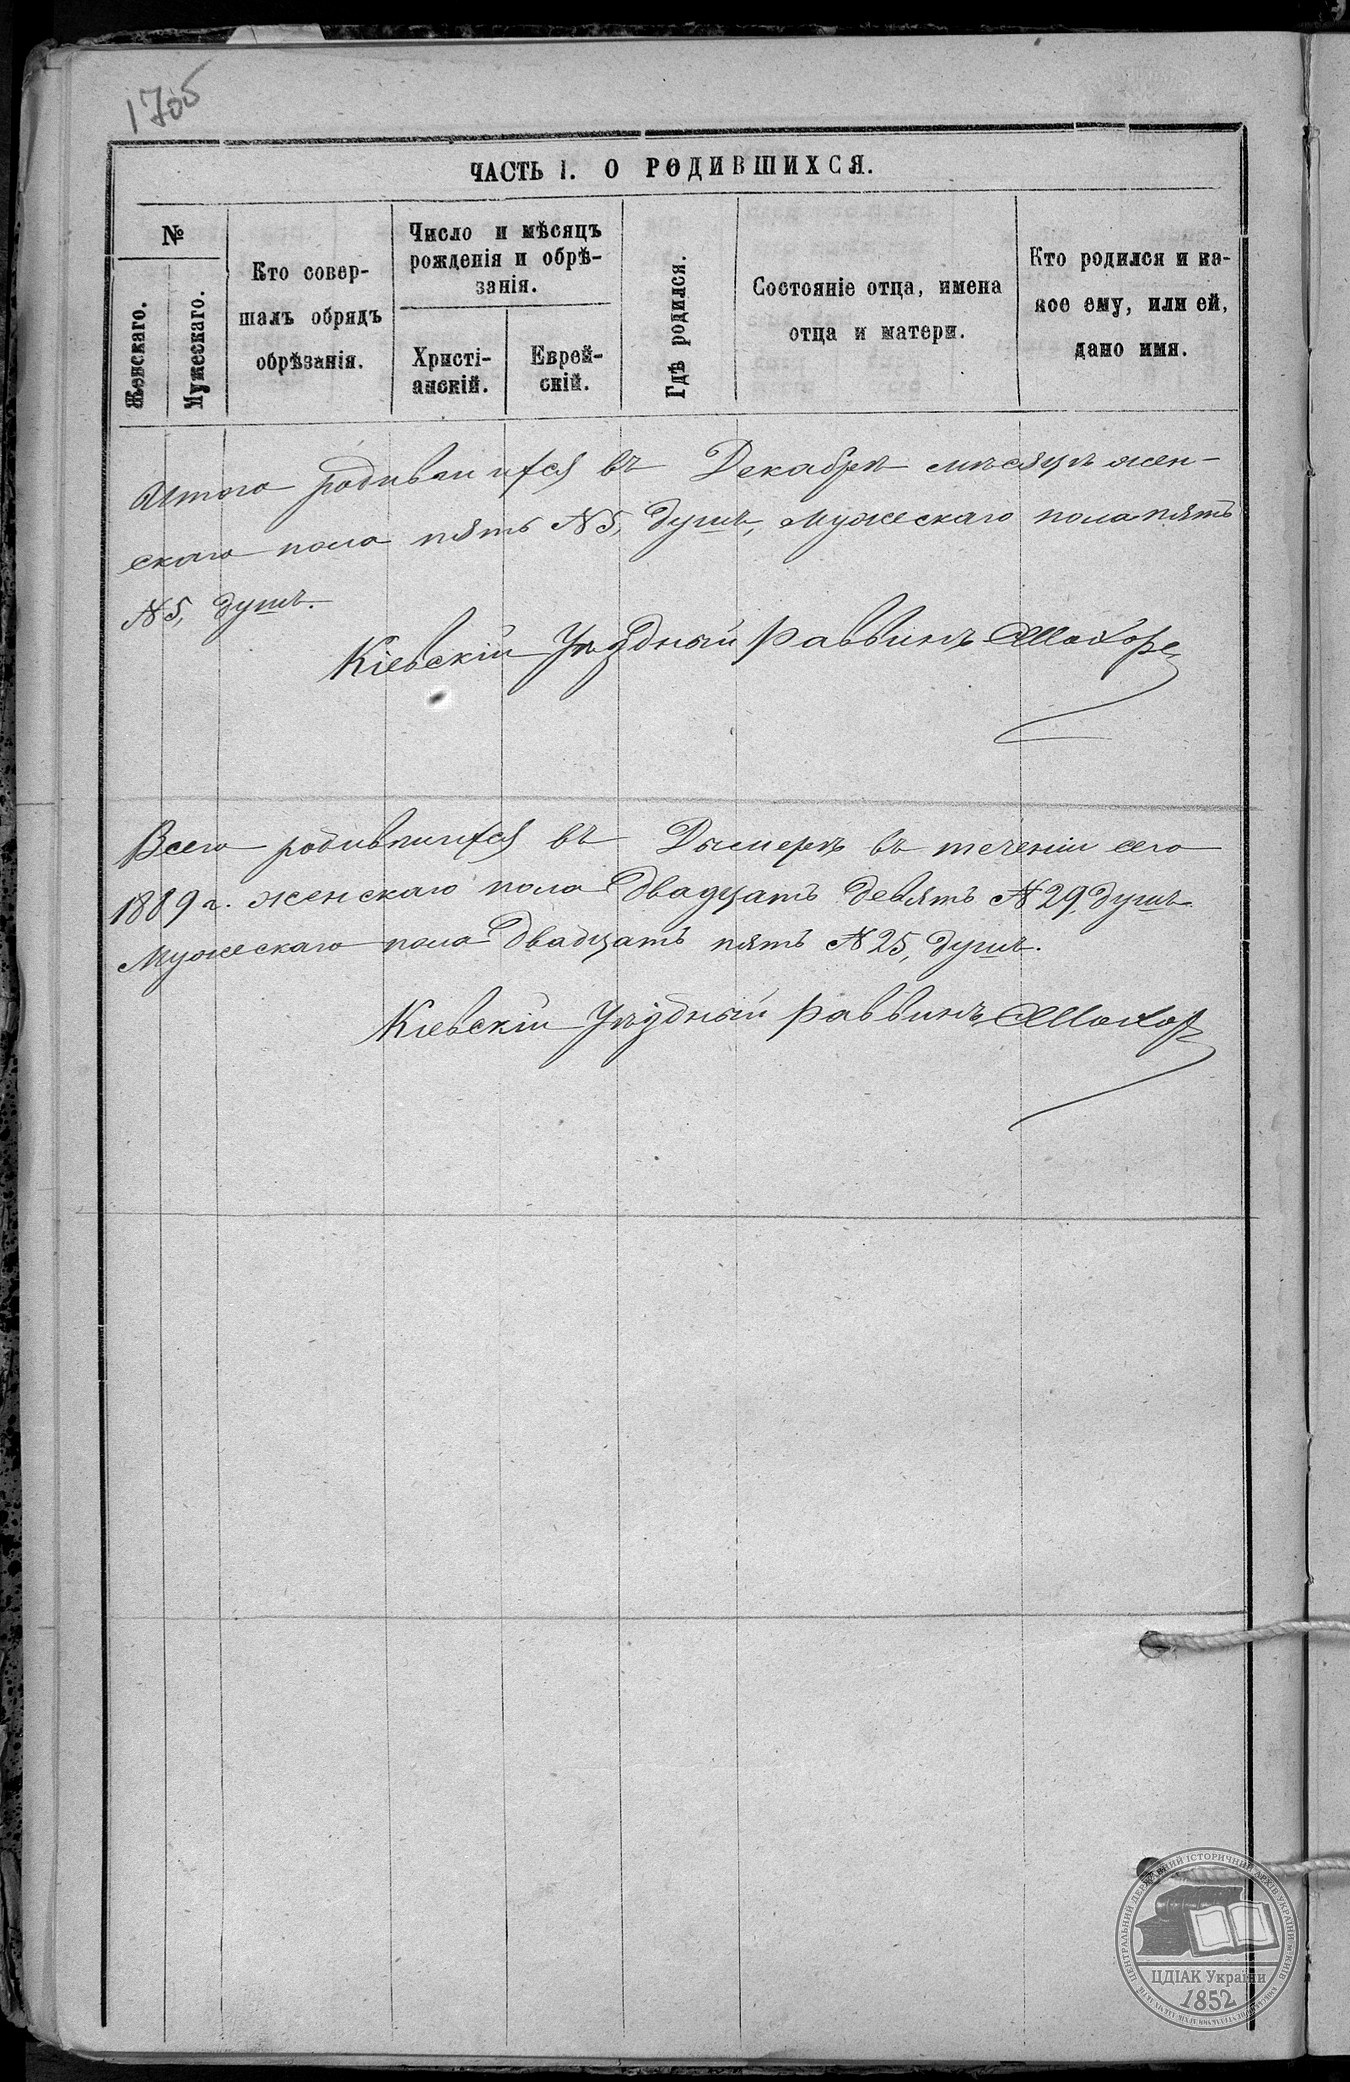 1705
ЧАСТЬ I. О РОДИВШИХСЯ.
№
Женскаго.
Мужескаго.
Кто совер-
шалъ обрядъ
обрѣзанія.
Число и мѣсяцъ
рожденія и обрѣ-
занія.
Христі-
анскій.
Еврей-
скій.
Гдѣ родился.
Состояніе отца, имена
отца и матери.
Кто родился и ка-
кое ему, или ей,
дано имя.
Итого родившихся въ Декабрѣ мѣсяцѣ жен-
скаго пола пять №5, душъ, Мужескаго пола пять
№5, душъ.
Кіевскій Уѣздный Раввинъ
Всего родившихся въ Дымерѣ въ теченіи сего
1889 г. женскаго пола двадцать девять №29, душъ.
Мужескаго пола двадцать пять №25, душъ.
Кіевскій Уѣздный Раввинъ
ЦЕНТРАЛЬНИЙ ДЕРЖАВНИЙ ІСТОРИЧНИЙ АРХІВ УКРАЇНИ М. КИЇВ
ЦДІАК України
1852